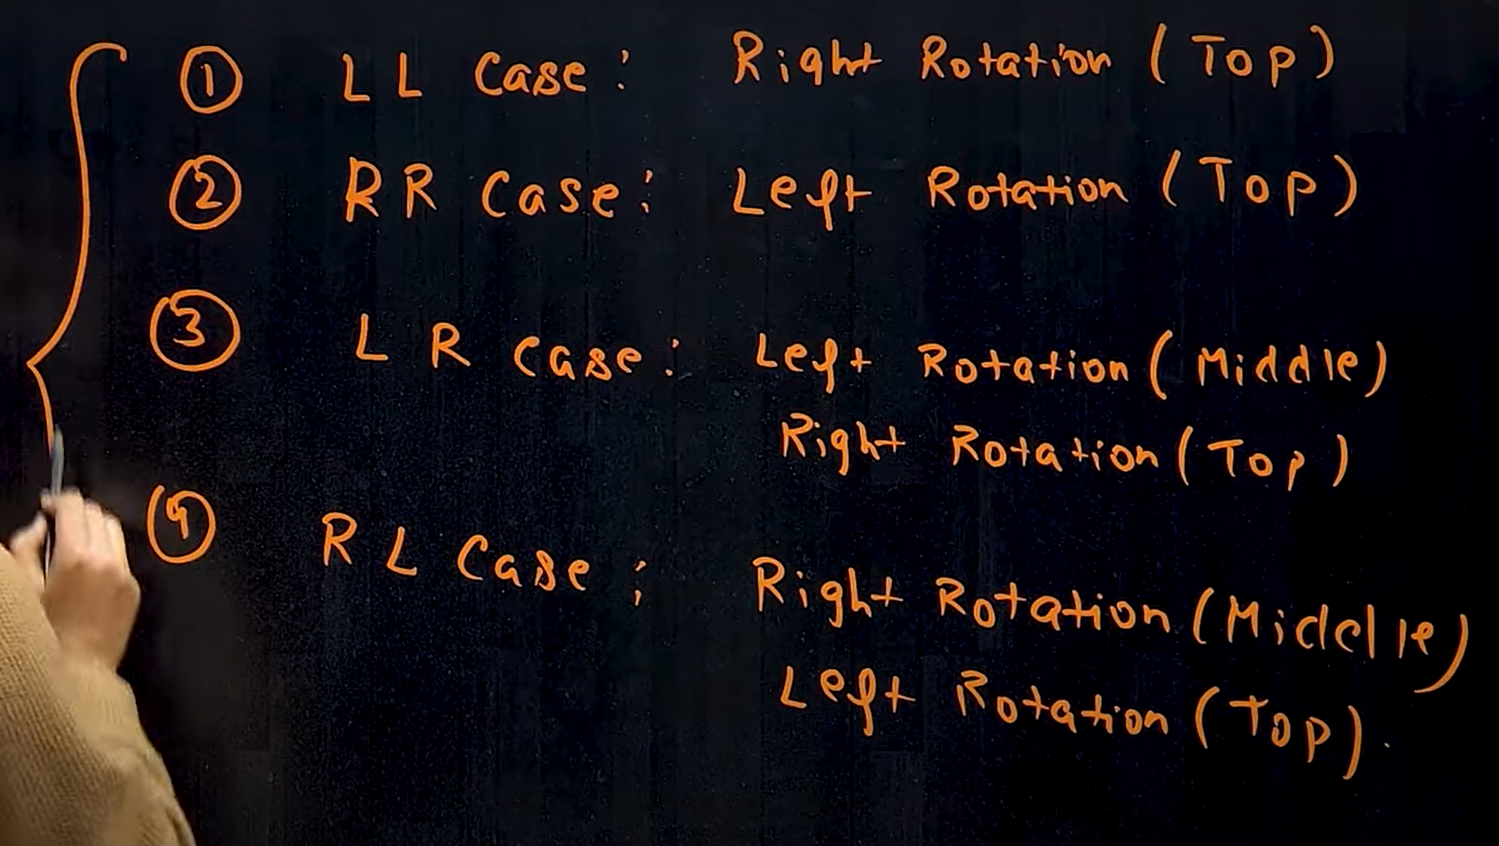 ① LL Case: Right Rotation (Top)
② RR Case: Left Rotation (Top)
③ LR Case: Left Rotation (Middle)
Right Rotation (Top)
④ RL Case: Right Rotation (Middle)
Left Rotation (Top).